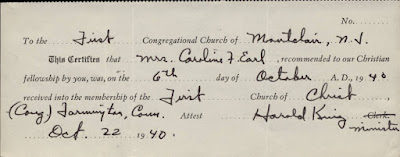 No.
To the First Congregational Church of Montclair, N.J.
This Certifies that Mrs. Caroline F. Earl, recommended to our Christian
fellowship by you, was, on the 6th day of October A. D., 1940
received into the membership of the First Church of Christ,
(Cong) Farmington, Conn. Attest Harold King Clerk.
Minister
Oct. 22 1940.